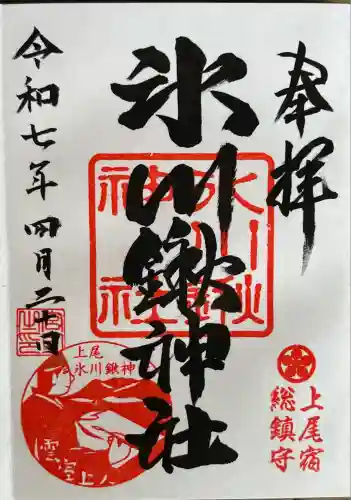 奉拝
上尾宿
総鎮守
氷川鍬神社
令和七年四月二十日
上尾
氷川鍬神社
雲室上人